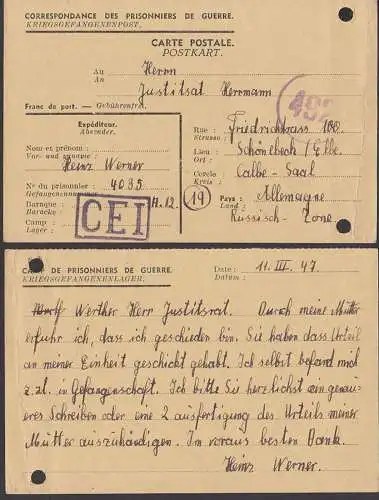 CORRESPONDANCE DES PRISONNIERS DE GUERRE.
KRIEGSGEFANGENENPOST.
CARTE POSTALE.
POSTKART.
Au
An
Herrn
Justitsat Herrmann
Franc de port. — Gebührenfrei.
492
Expéditeur.
Absender.
Nom et prénom:
Vor- und zuname:
Heinz Werner
No du prisonnier:
Gefangenennummer
4085
Baraque
Baracke
H. 12.
Camp:
Lager:
CEI
19
Rue:
Strasse:
Friedrichstrass 100
Lieu:
Ort:
Schönebeck / Elbe.
Cercle
Kreis:
Calbe - Saal
Pays:
Land:
Allemagne
Russisch - Zone
DE PRISONNIERS DE GUERRE.
KRIEGSGEFANGENENLAGER.
Date:
Datum:
11. III. 47.
Werther Herr Justitsrat. Durch meine Mutter
erfuhr ich, dass ich geschieden bin. Sie haben dass Urteil
an meiner Einheit geschickt gehabt. Ich selbst befand mich
z. zt. in Gefangenschaft. Ich bitte Sie herzlichst ein genau-
eres Schreiben oder eine 2 ausfertigung des Urteils meiner
Mutter auszuhändigen. Im voraus besten Dank.
Heinz Werner.